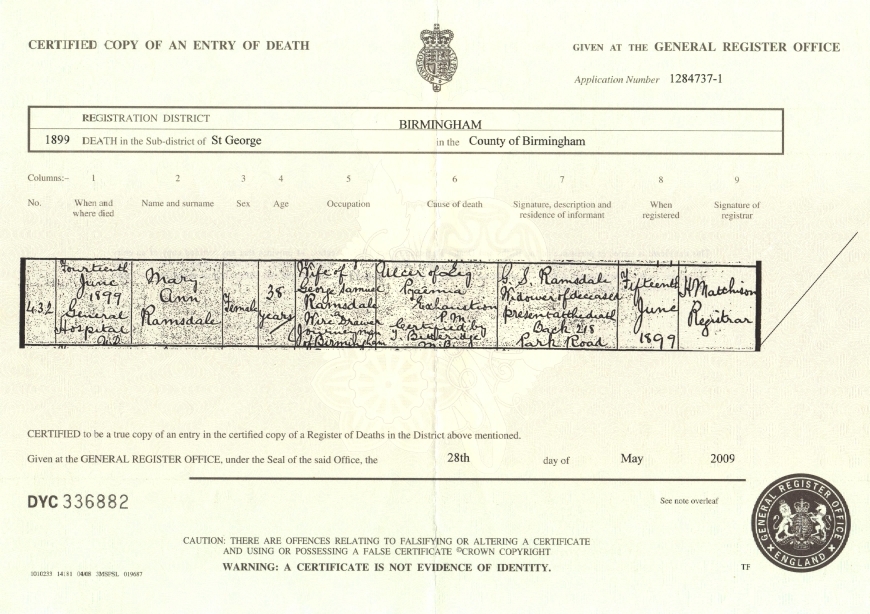 CERTIFIED COPY OF AN ENTRY OF DEATH
GIVEN AT THE GENERAL REGISTER OFFICE
Application Number 1284737-1
REGISTRATION DISTRICT BIRMINGHAM
1899 DEATH in the Sub-district of St George in the County of Birmingham
Columns:- 1 2 3 4 5 6 7 8 9
No. When and where died Name and surname Sex Age Occupation Cause of death Signature, description and residence of informant When registered Signature of registrar
432
Fourteenth
June
1899
General
Hospital
Mary
Ann
Ramsdale
Female
38
years
Wife of
George Samuel
Ramsdale
Wire Drawer
Journeyman
of Birmingham
Ulcer of Leg
Pyaemia
Exhaustion
P.M.
Certified by
M.B.
G. S. Ramsdale
Widower of deceased
present at the death
Back 218
Park Road
Fifteenth
June
1899
H Matchison
Registrar
CERTIFIED to be a true copy of an entry in the certified copy of a Register of Deaths in the District above mentioned.
Given at the GENERAL REGISTER OFFICE, under the Seal of the said Office, the 28th day of May 2009
DYC 336882
See note overleaf
CAUTION: THERE ARE OFFENCES RELATING TO FALSIFYING OR ALTERING A CERTIFICATE
AND USING OR POSSESSING A FALSE CERTIFICATE ©CROWN COPYRIGHT
WARNING: A CERTIFICATE IS NOT EVIDENCE OF IDENTITY.
GENERAL REGISTER OFFICE
ENGLAND
TF